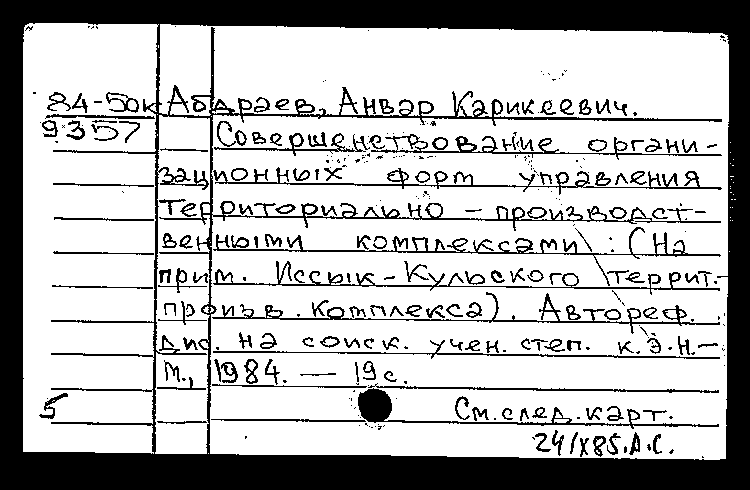 84-50к Абдраев, Анвар Карикеевич.
9357 Совершенствование органи-
зационных форм управления
территориально - производст-
венными комплексами : (На
прим. Иссык-Кульского террит.-
произв. комплекса). Автореф.
дис. на соиск. учен. степ. к.э.н.-
М., 1984. — 19 с.
5 См. след. карт.
24/X85.А.С.